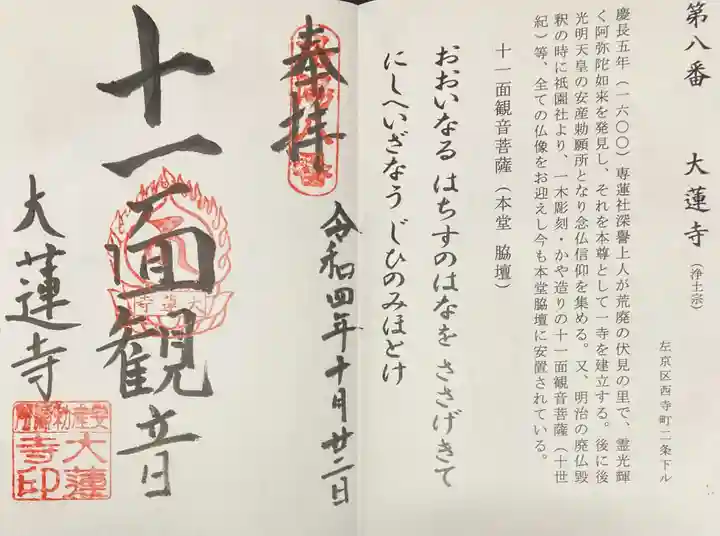 第八番 大蓮寺(浄土宗)
左京区西寺町二条下ル
慶長五年(一六〇〇)専蓮社深誉上人が荒廃の伏見の里で、霊光輝
く阿弥陀如来を発見し、それを本尊として一寺を建立する。後に後
光明天皇の安産勅願所となり念仏信仰を集める。又、明治の廃仏毀
釈の時に祇園社より、一木彫刻・かや造りの十一面観音菩薩(十世
紀)等、全ての仏像をお迎えし今も本堂脇壇に安置されている。
十一面観音菩薩(本堂 脇壇)
おおいなる はちすのはなを ささげきて
にしへいざなう じひのみほとけ
奉拝
令和四年十月廿二日
十一面観音
大蓮寺
大蓮寺
安産勅願所
大蓮
寺印